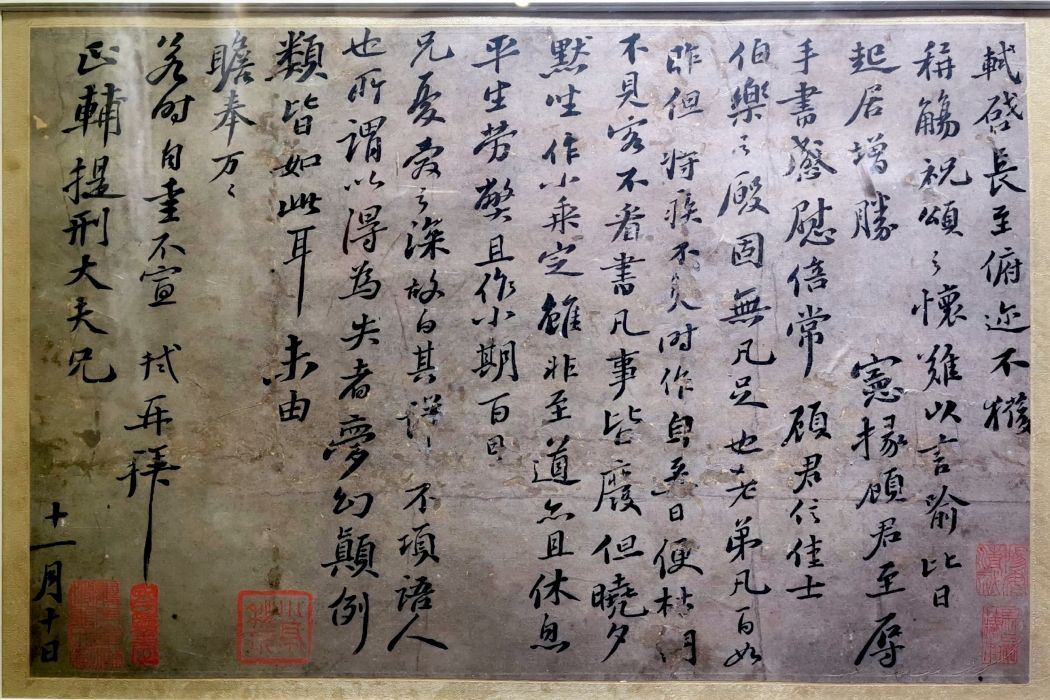 軾啓長至俯迩不獲
稱觴祝頌之懷難以言喻比日
起居增勝 憲掾顧君至辱
手書感慰倍常 顧君信佳士
伯樂之廄固無凡足也老弟凡百如
昨但痔疾不免時作自至日便杜門
不見客不看書凡事皆廢但曉夕
默坐作小乘定雖非至道亦且休息
平生勞弊且作小期百日
兄憂愛之深故白其詳不須語人
也所謂以得為失者夢幻顛倒
類皆如此耳 未由
瞻奉万々
若時自重不宣 軾再拜
正輔提刑大夫兄
十一月十日